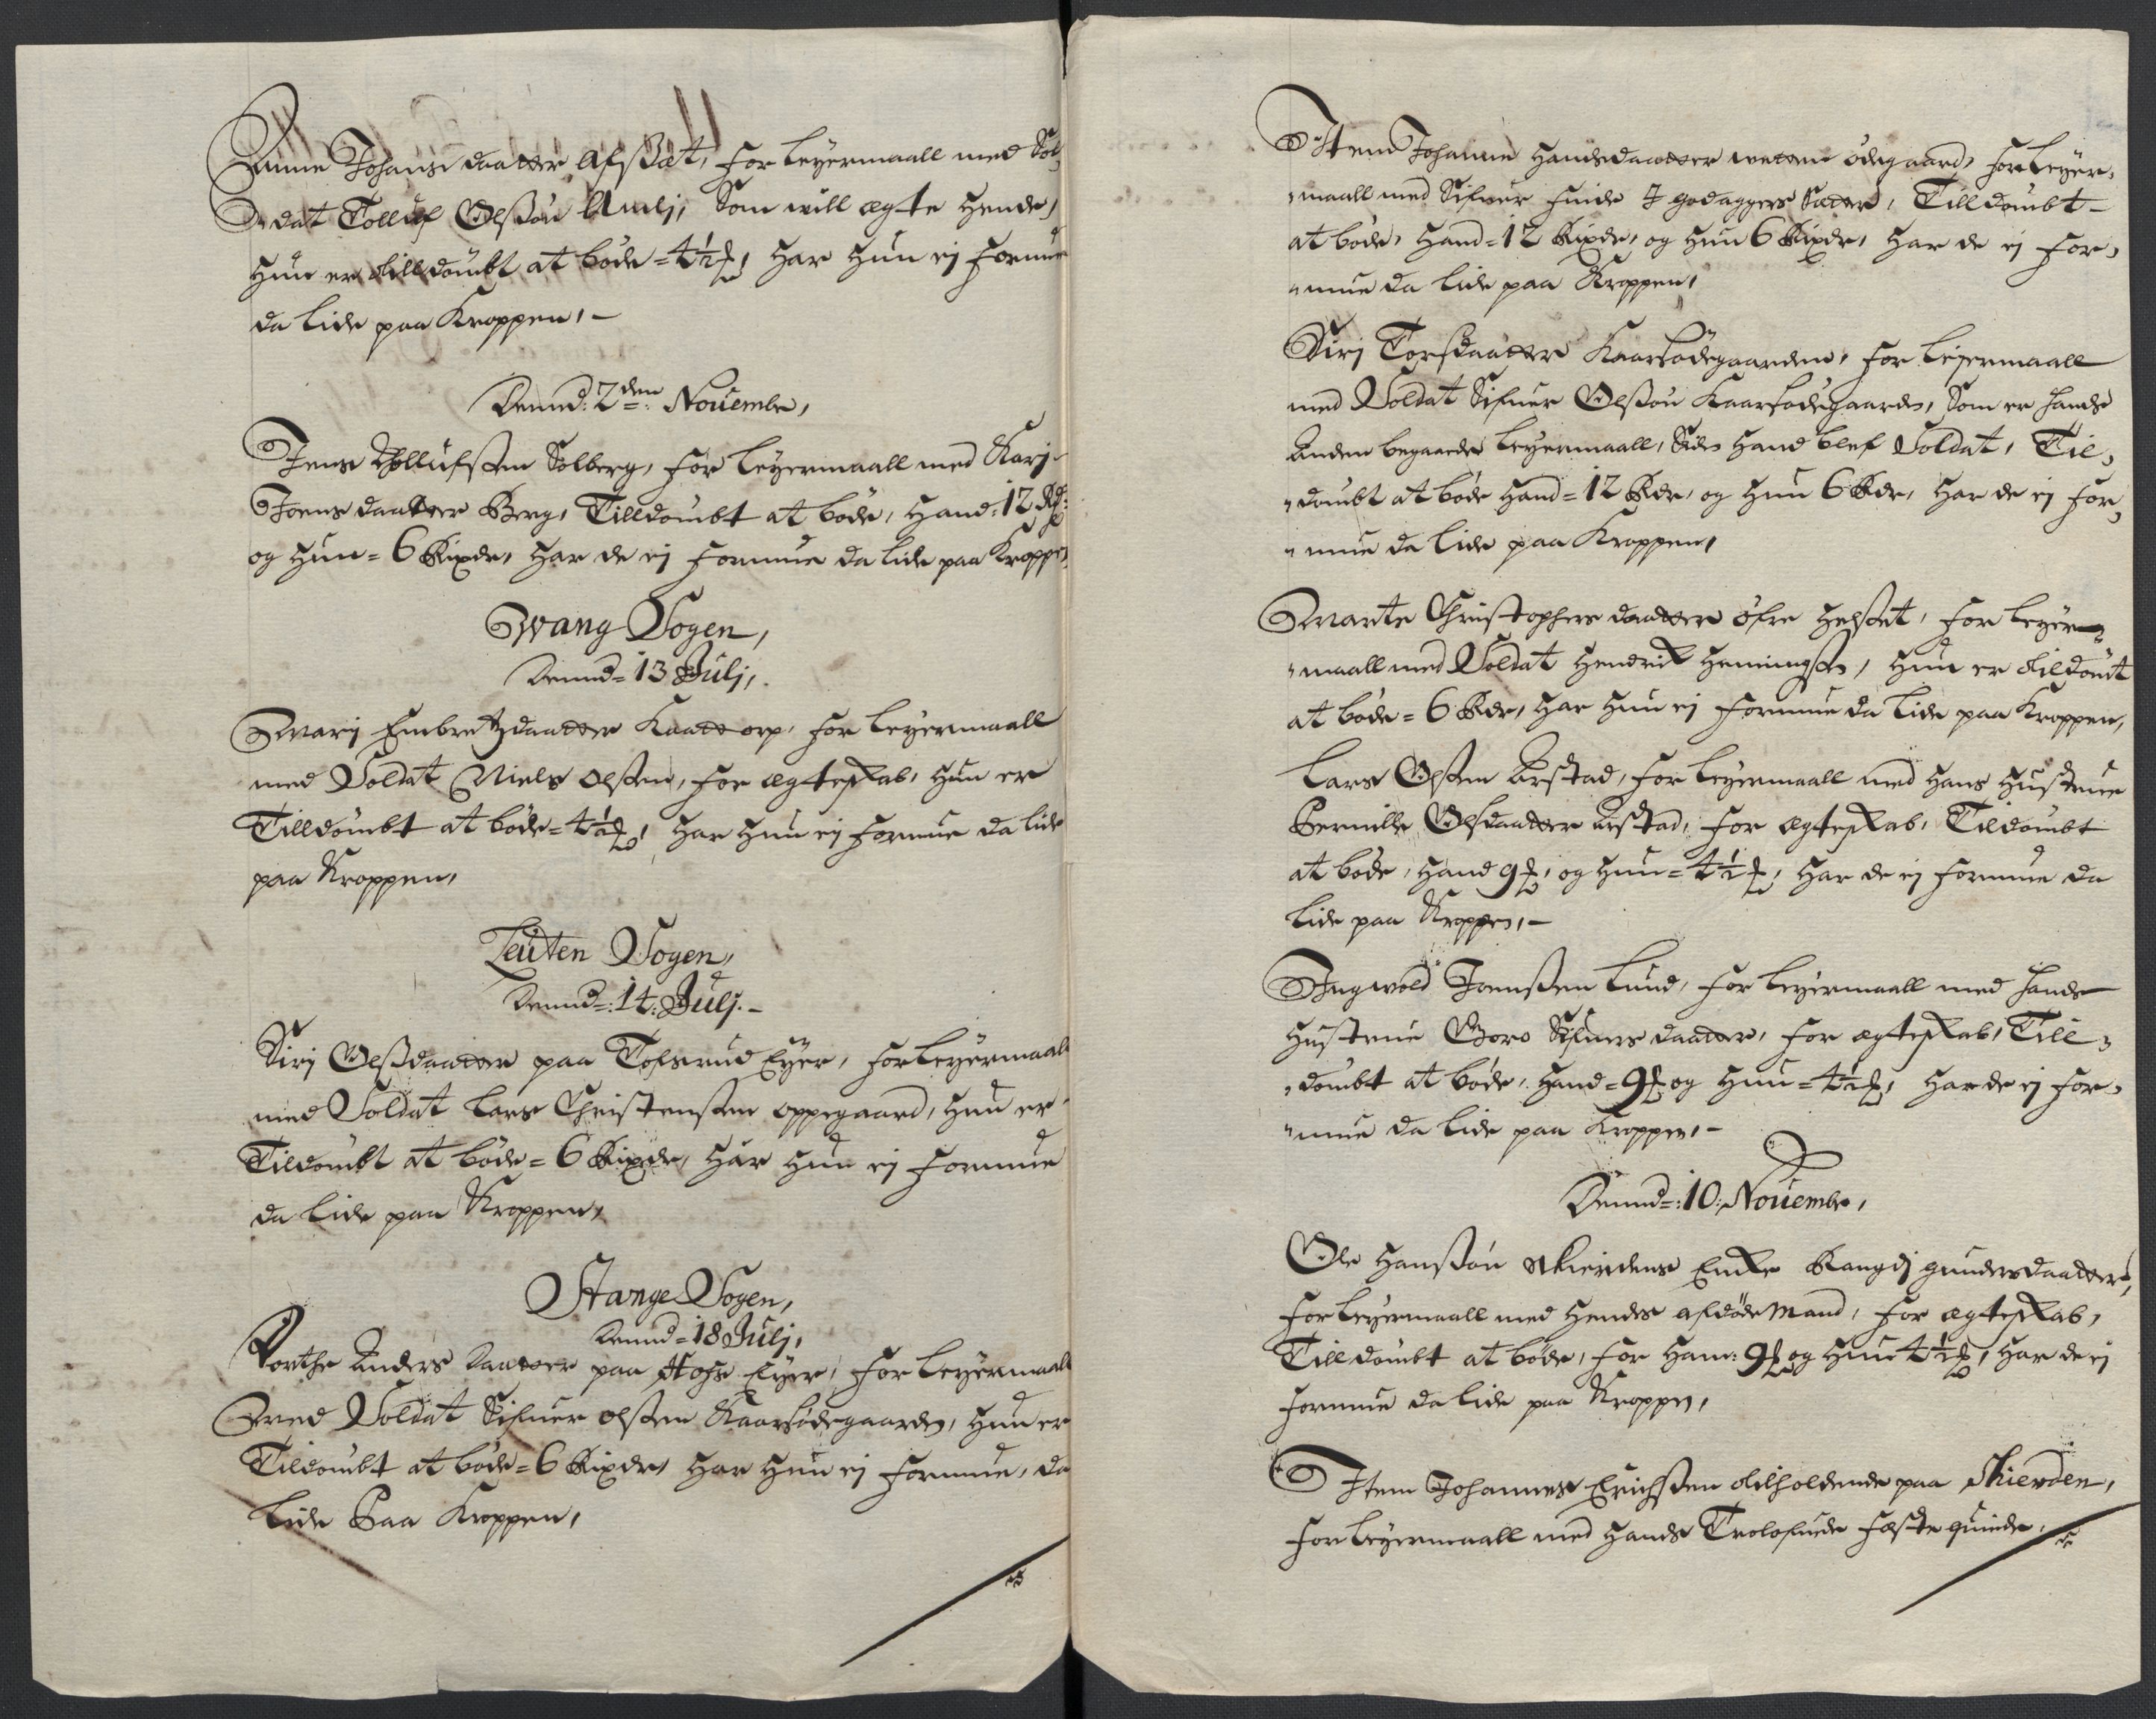 Anne Johans daatter Afsset, for Leyermaall med Sol-
dat Tolluf Olssøn Aml&#x69;, Som will ægte Hende,
Hun er tilldømbt at bøde = 4½ , Har Hun ej Formue
da Lide paa Kroppen, -
Dennd: 2den Nouembr,
Jens Tollufssen Solberg, for Leyermaall med Karj
Joens daatter Berg, Tilldømbt at bøde, Hand: 12 Rd:
og Hun = 6 Rixdr, Har de ej Formue da lide paa Kroppen,
Wang Sogen,
Dennd = 13 Julj,
Marj Embretzdaatter Kaattorp, for Leyermaall
med Soldat Niels Olssen, for ægteskab, Hun er
Tilldømbt at bøde = 4½ , Har Hun ej Formue da lide
paa Kroppen,
Leuten Sogen,
Dennd =: 14: Julj. -
Sirj Olssdaatter paa Tofsrud Eyer, for Leyermaall
med Soldat Lars Christenssen oppegaard, Hun er
Tildømbt at bøde = 6 Rixdr, Har Hun ej Formue
da Lide paa Kroppen,
Stange Sogen,
Dennd = 18 Julj,
Dorthe Anders daatter paa Hofs Eyer, for Leyermaall
Med Soldat Sifuer olssen Kaarsødegaarden, Hun er
Tildømbt at bøde = 6 Rixdr, Har Hun ej Formue, da
Lide Paa Kroppen,
Item Johanne Handsdaatter wetten ødegaard, for Leyer-
maall med Sifuer Finde J godaggers Sætter, Tilldømbt
at bøde, Hand = 12 Rixdr, og Hun 6 Rixdr, Har de ej For-
mue da Lide paa Kroppen,
Sirj Torsdaatter Kaarsødegaarden, for Leyermaall
med Soldat Sifuer Olssøn Kaarsødegaarden, Som er Hands
Anden begaaede Leyermaall, Siden Hand blef Soldat, Til-
dømbt at bøde Hand = 12 Rdr, og Hun 6 Rdr, Har de ej For-
mue da Lide paa Kroppen,
Marte Christophers daatter øfre Helset, for Leyer-
maall med Soldat Hendrik Hemingssen, Hun er tildømt
at bøde = 6 Rdr, Har Hun ej Formue da Lide paa Kroppen,
Lars Olssen Arstad, for Leyermaall med Hans Hustrue
Pernille Olsdaatter Arstad, for ægteskab, Tildømbt
at bøde, Hand 9 , og Hun = 4½ , Har de ej Formue da
Lide paa Kroppen, -
Ingwold Joenssen Lund, for Leyermaall med Hands
Hustrue Goro Sifuers daatter, for ægteskab, Till-
dømbt at bøde, Hand = 9 og Hun = 4½ , Har de ej For-
mue da Lide paa Kroppen, -
Dennd =: 10: Nouembr,
Ole Hanssøn Skierdens Enke Rangdj gunders daatter,
for Leyermaall med Hendes afdøde Mand, for ægteskab,
Tilldømbt at bøde, for Ham: 9 og Hun 4½ , Har de ej
Formue da Lide paa Kroppen,
Item Johannes Erichssen tilholdende paa Skierden,
for Leyermaall med Hands Trolofuede Feste quinde,